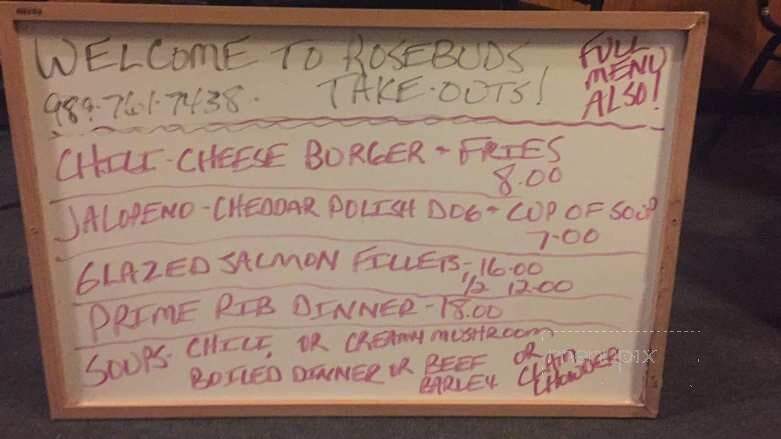 WELCOME TO ROSEBUDS
FULL
MENU
ALSO!
989-761-7438. TAKE-OUTS!
CHILI-CHEESE BURGER - FRIES
8.00
JALOPENO-CHEDDAR POLISH DOG - CUP OF SOUP
7-00
GLAZED SALMON FILLETS - 16.00
1/2 12.00
PRIME RIB DINNER - 18.00
SOUPS- CHILI, OR CREAMY MUSHROOM
BOILED DINNER OR BEEF
BARLEY
OR
CLAM
CHOWDER